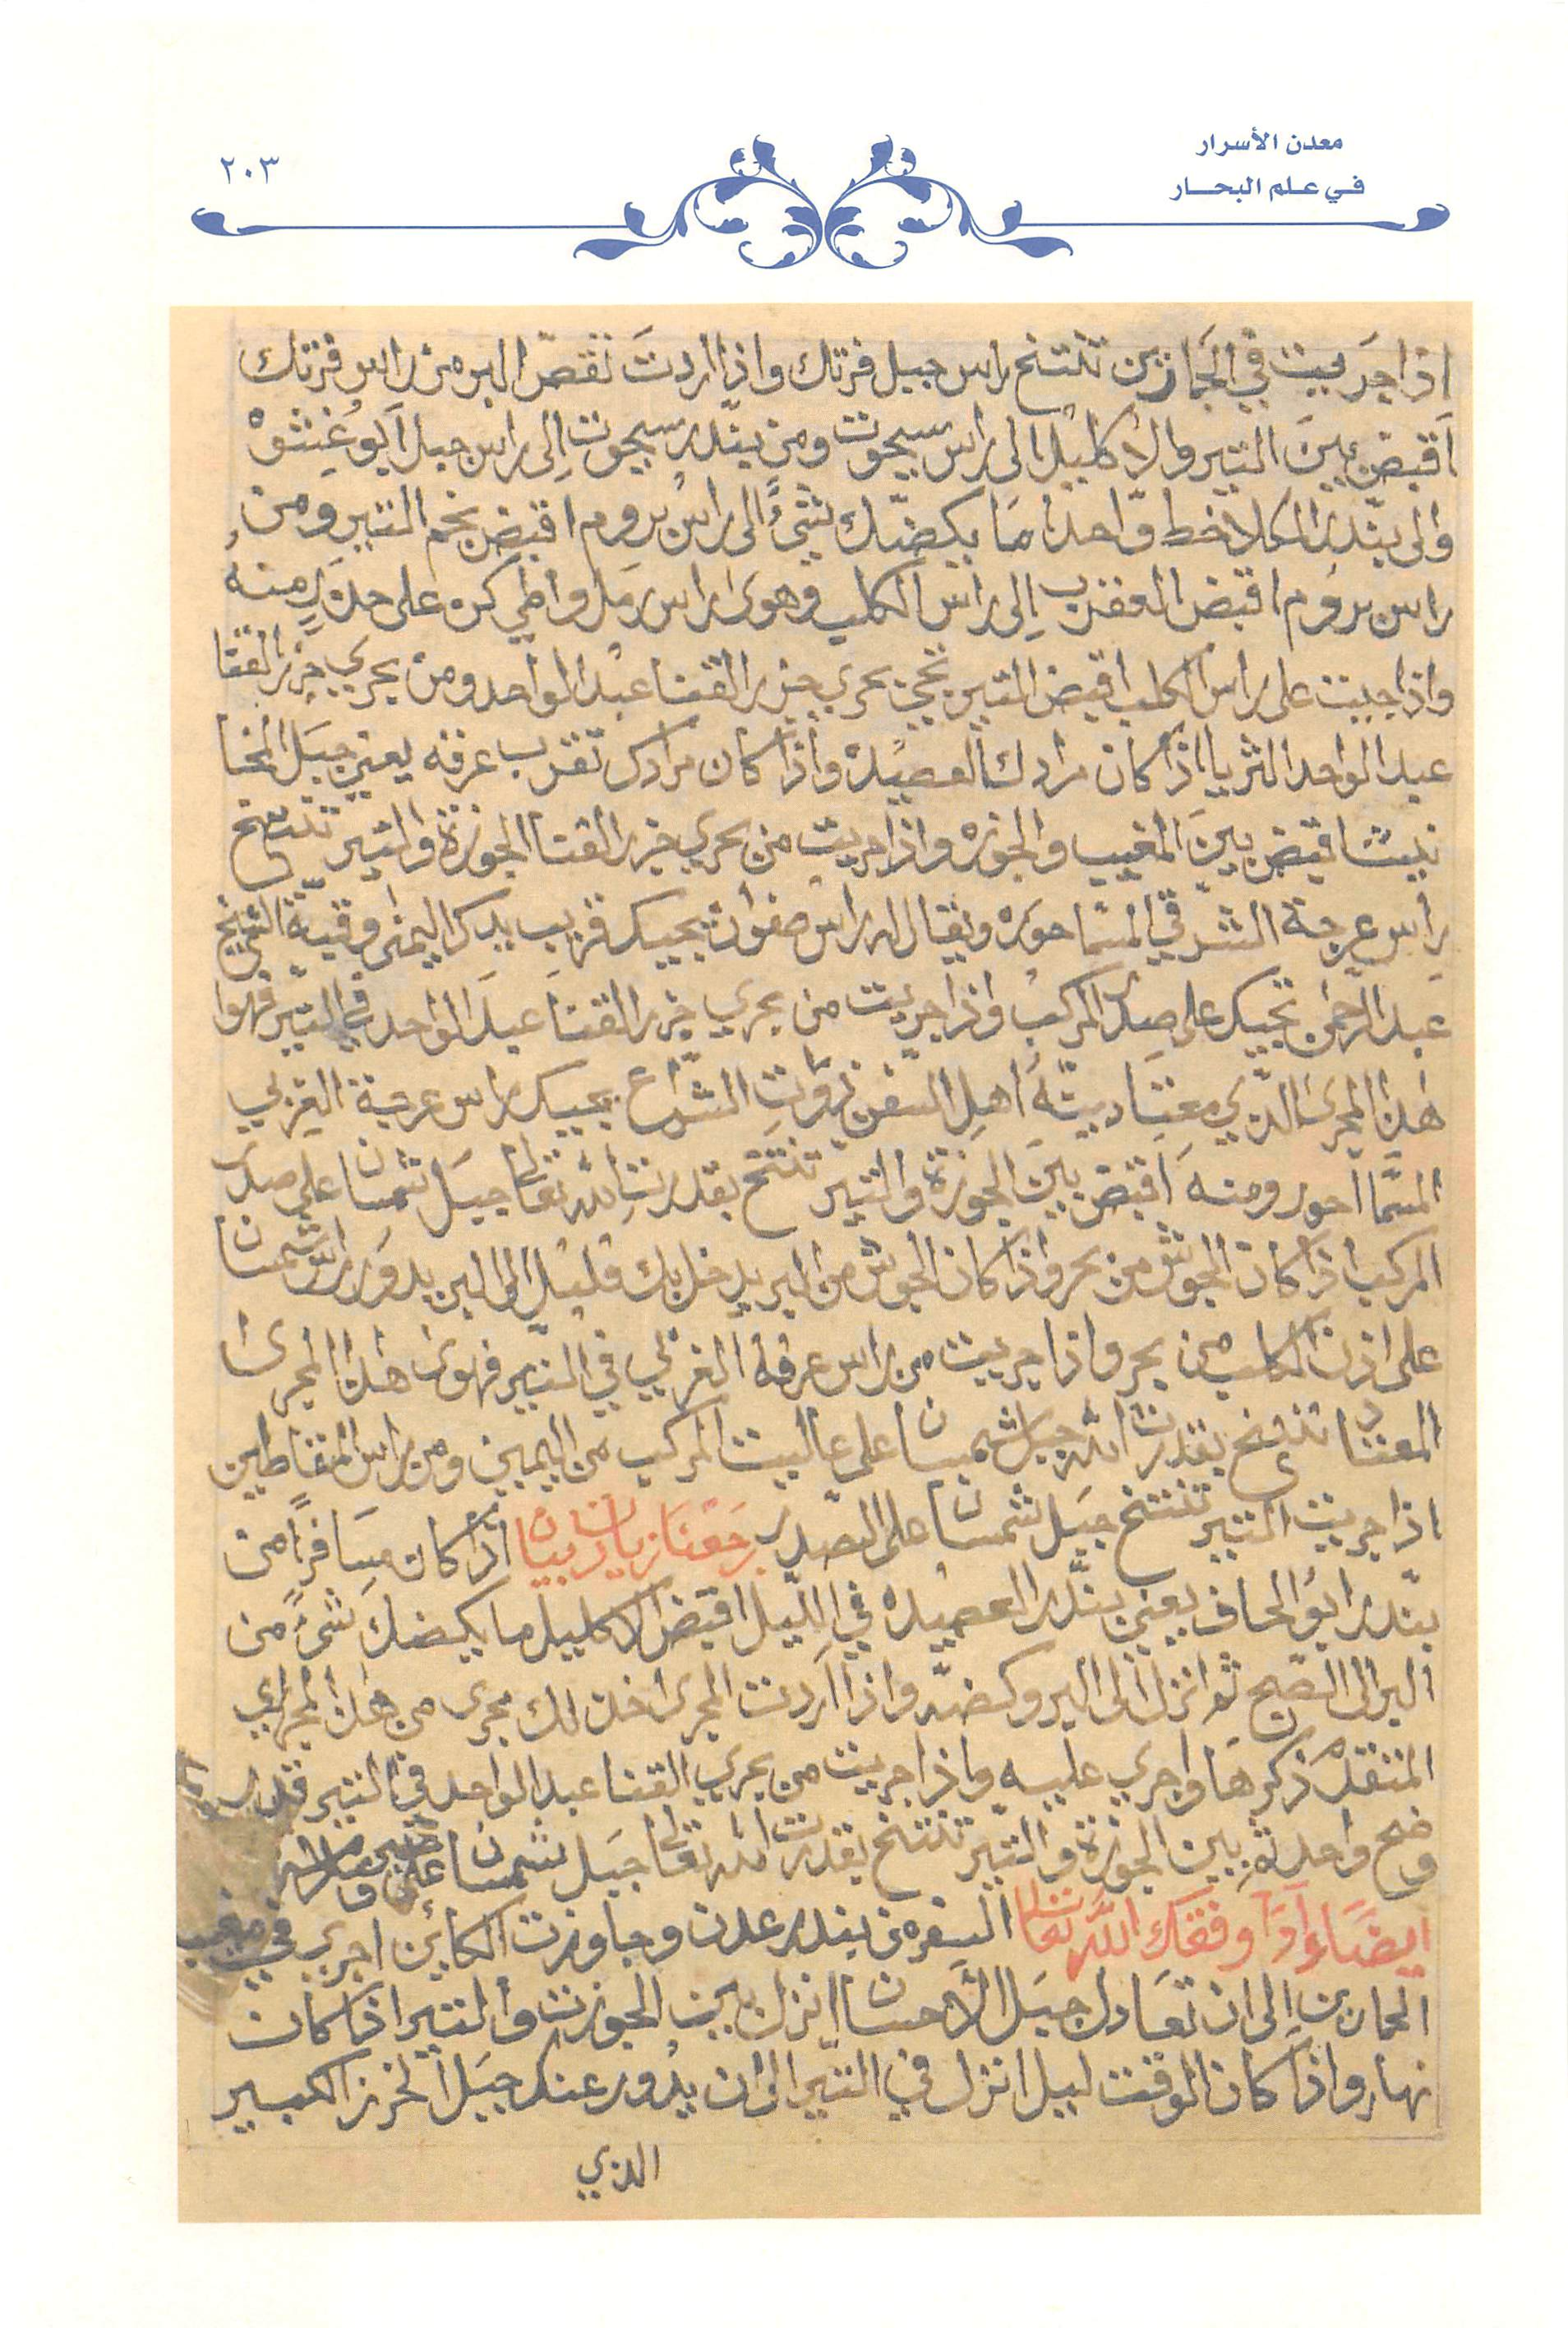 معدن الأسرار
في علم البحار
٢٠٣
اذا جريت في الحمارين تنتخ راس جبيل فرتك واذا اردت تقص البر من راس فرتك
اقبض بين التير والاكليل الى راس سيحوت ومن بندر سيحوت الى راس جبل ابو غشوه
والى بندر المكلا خط واحدا ما يكضك شيء الى راس بروم اقبض نجم التير ومن
راس بروم اقبض العقرب الى راس الكلب وهوى راس رمل واطي كن على حذر منه
واذا جييت على راس الكلب اقبض التير تجي بحري جزر القنا عبد الواحد ومن بحري جزر القنا
عبد الواحد الثريا اذا كان مرادك العصيده واذا كان مرادك تقرب عرفه يعني جبل المخا
نيشا قبض بين المغيب والجوزه واذا جريت من بحري جزر القنا الجوزة والتير تنتخ
راس عرجة الشرقي المسما حوره ويقال له راس صفوان يجيك قريب يدك اليمنى وقبة الشيخ
عبد الرحمن تجيك على صدر المركب واذا جريت من بحري جزر القنا عبد الواحد في التير فهوا
هذا المجرى الذي معتاد بيته اهل السفن زوات الشراع يجيك راس عرجة الغربي
المسما احور ومنه اقبض بين الجوزة والتير تنتخ بقدرت الله تعالى جبل شمسان على صدر
المركب اذا كان الجوش من بحر واذا كان الجوش من البر يدخل بك قليل الى البر يدور راس شمسان
على اذن الكلب من بحر واذا جريت من راس عرفه الغربي في التير فهوى هذا المجرى
المعتاد تنتخ بقدرت الله جبل شمسان على عاليت المركب من اليمين ومن راس المقاطين
اذا جريت التير تنتخ جبل شمسان على الصدر رجعنا زيادة بيان اذا كان مسافراً من
بندر ابو الحاف يعني بندر العصيده في الليل اقبض الاكليل ما يكضك شيء من
البر الى الصبح ثم انزل الى البر وكضه واذا اردت المجرى اخذ لك مجرى من هذا المجاري
المتقدم ذكرها واجري عليه واذا جريت من بحري القنا عبد الواحد في التير قدر
وضح واحد ثم بين الجوزة والتير تنتخ بقدرت الله تعالى جبل شمسان على
ايضاً واذا وفقك الله تعالى السفر من بندر عدن وجاوزت الكاين اجري في مغيب
الحمارين الى ان تعادل جبل الاحسان انزل بين الجوزت والتير اذا كان
نهار واذا كان الوقت ليل انزل في التير الى ان يدور عندك جبل الخرز الكبير
الذي